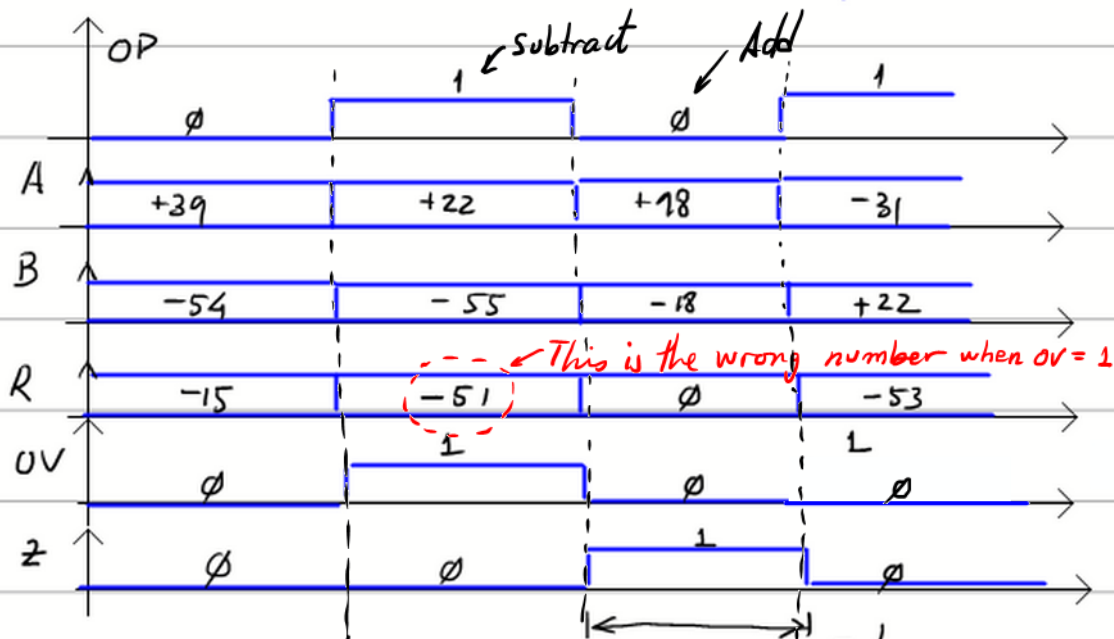 OP
Subtract
Add
Ø 1 Ø 1
A +39 +22 +18 -31
B -54 -55 -18 +22
This is the wrong number when OV = 1
R -15 -51 Ø -53
1 1
OV Ø Ø Ø
Z Ø Ø 1 Ø